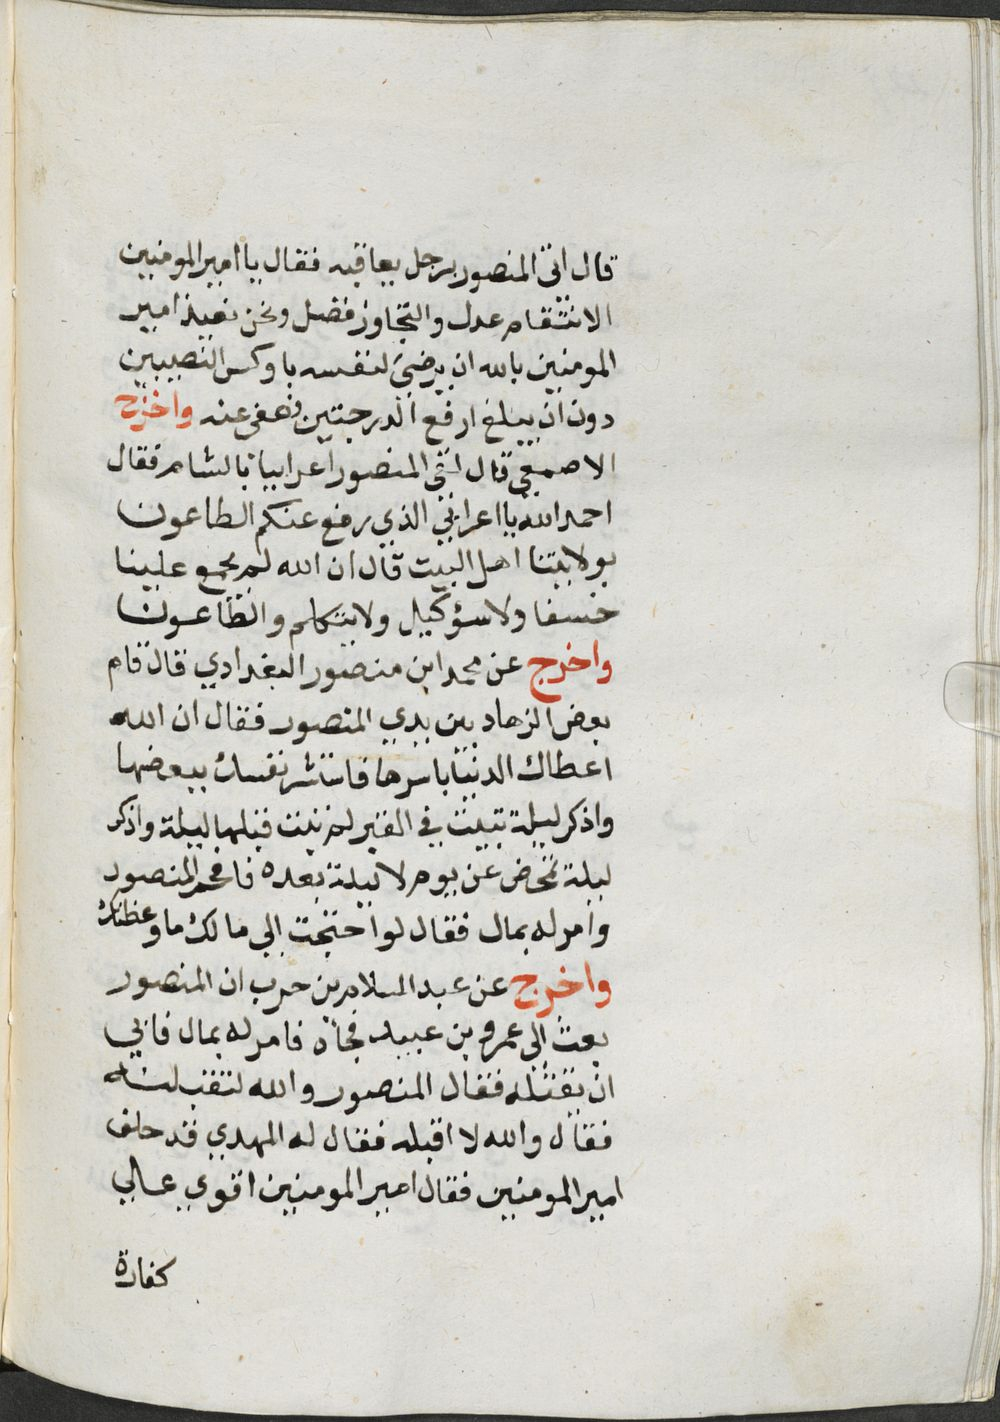 قال اتى المنصور برجل يعاقبه فقال يا امير المومنين
الانتقام عدل والتجاوز فضل ونحن نعيذ امير
المومنين بالله ان يرضى لنفسه باوكس النصيبين
دون ان يبلغ ارفع الدرجتين فعفى عنه واخرج
الاصمعي قال لقى المنصور اعرابيا بالشام فقال
احمد الله يا اعرابي الذي رفع عنكم الطاعون
بولايتنا اهل البيت قال ان الله لم يجمع علينا
خسفا ولا سؤ كيل ولايتكم والطاعون
واخرج عن محمد ابن منصور البغدادي قال قام
بعض الزهاد بين يدي المنصور فقال ان الله
اعطاك الدنيا باسرها فاشتر نفسك ببعضها
واذكر ليلة تبيت في القبر لم تبت قبلها ليلة واذكر
ليلة تمخض عن يوم لا ليلة بعده فافحم المنصور
وامر له بمال فقال لو احتجت الي مالك ما وعظتك
واخرج عن عبد السلام بن حرب ان المنصور
بعث الي عمرو بن عبيد فجاه فامر له بمال فابي
ان يقبله فقال المنصور والله لتقبلنه
فقال والله لا اقبله فقال له المهدي قد حلف
امير المومنين فقال امير المومنين اقوي علي
كفارة